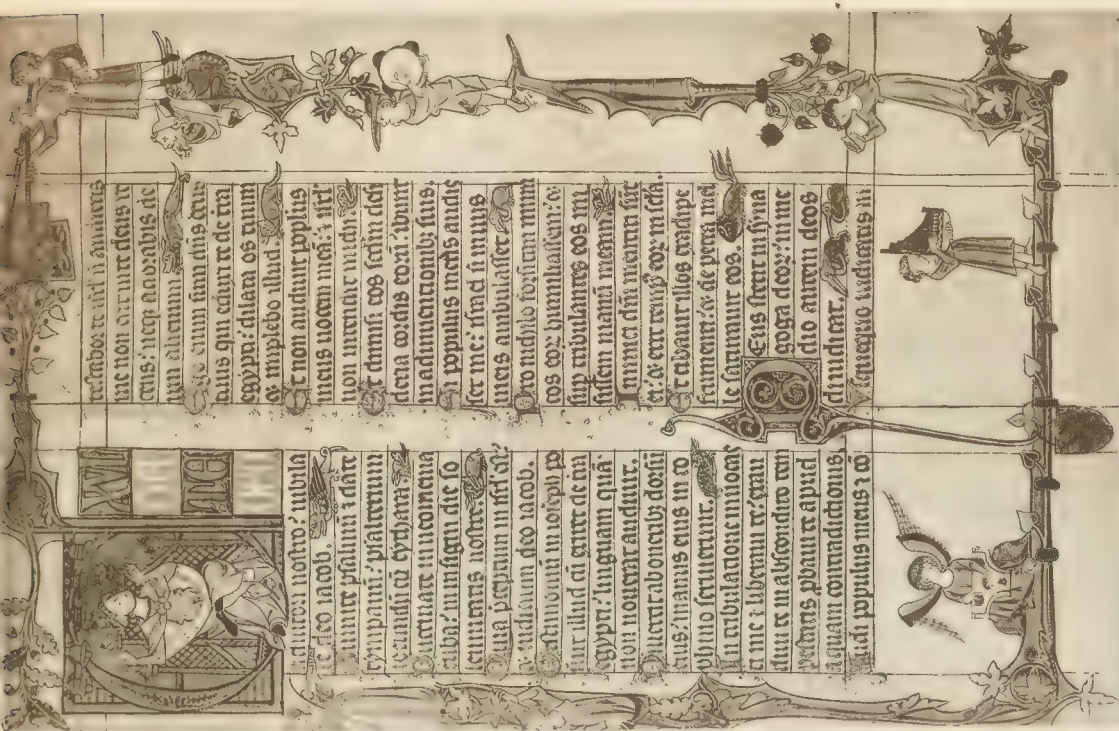 XVL
iutori nostro: iubila
te deo iacob.
Sumite psalmũ ⁊ date
tympanũ: psalterium
iocundũ cũ cythara.
Buccinate in neomenia
tuba: in insigni die so
lemnitatis nostre.
Quia preceptum in isrl' est:
et iudicium deo iacob.
Testimoniũ in ioseph po
suit illud cũ exiret de tra
egypti: linguam quã
non nouerat audiuit.
Diuertit ab oneribꝫ dorsũ
eius: manus eius in co
phino seruierunt.
In tribulatione inuocas
ti me ⁊ liberaui te: exau
diui te in abscondito tem
pestatis ꝓbaui te apud
aquam contradictionis.
Audi populus meus ⁊ cõ
testabor te isrl' si audieris
me non erit in te deus re
cens: neqꝫ adorabis de
um alienum.
Ego enim sum dñs deus
tuus qui eduxi te de tra
egypti: dilata os tuum
et implebo illud.
Et non audiuit poplus
meus uocem meã: ⁊ isrl'
non intendit michi.
Et dimisi eos scdm desi
deria cordis eorũ: ibunt
in adinuentionibꝫ suis.
Si populus meus audis
set me: israel si in uiis
meis ambulasset.
Pro nichilo forsitam inimi
cos eoꝝ humiliassem: et
sup tribulantes eos mi
sissem manũ meam.
Inimici dñi mentiti sũt
ei: ⁊ erit temp' eoꝝ in scła.
Et cibauit illos ex adipe
frumenti: ⁊ de petra mel
le saturauit eos.
Deus stetit in syna
goga deoꝝ: in me
dio autem deos
diiudicat.
Usquequo iudicatis in